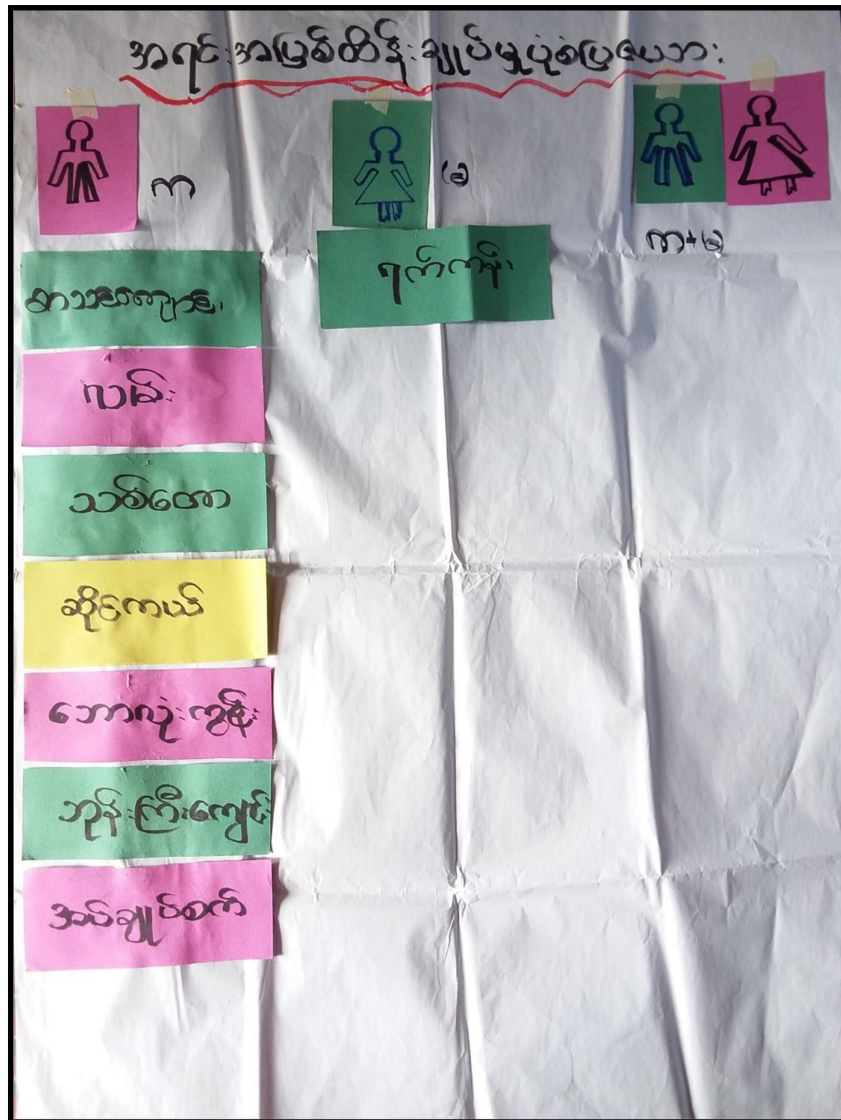 အရင်းအမြစ်ထိန်းချုပ်မှုပုံစံပြဇယား
က
မ
က+မ
ရက်ကန်း
စာသင်ကျောင်း
လမ်း
သစ်တော
ဆိုင်ကယ်
ဘောလုံးကွင်း
ဘုန်းကြီးကျောင်း
အပ်ချုပ်စက်